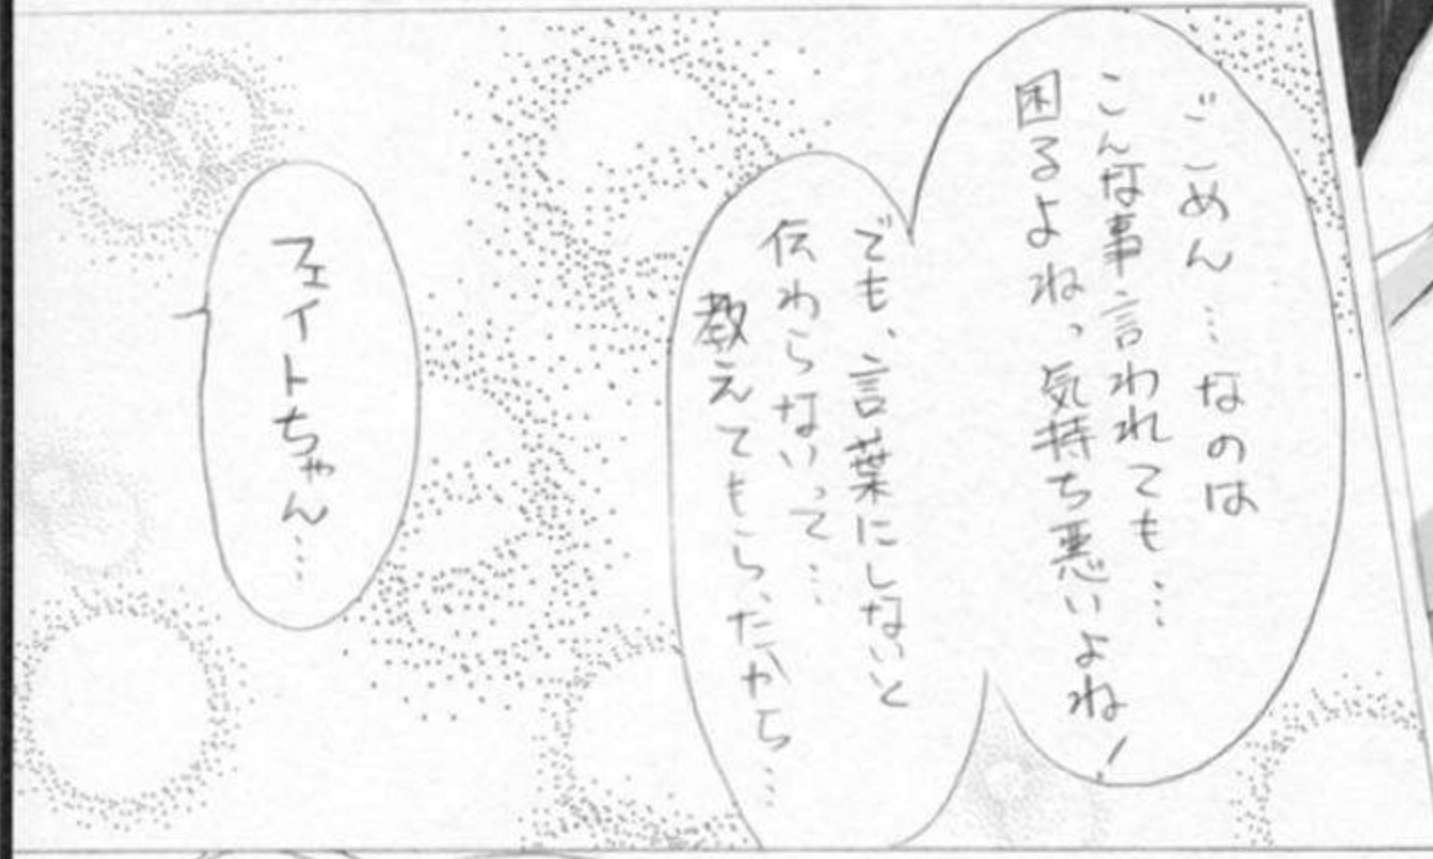 ごめん…なのは
こんな事言われても…
困るよねっ気持ち悪いよね!
でも、言葉にしないと
伝わらないって…
教えてもらったから…
フェイトちゃん…